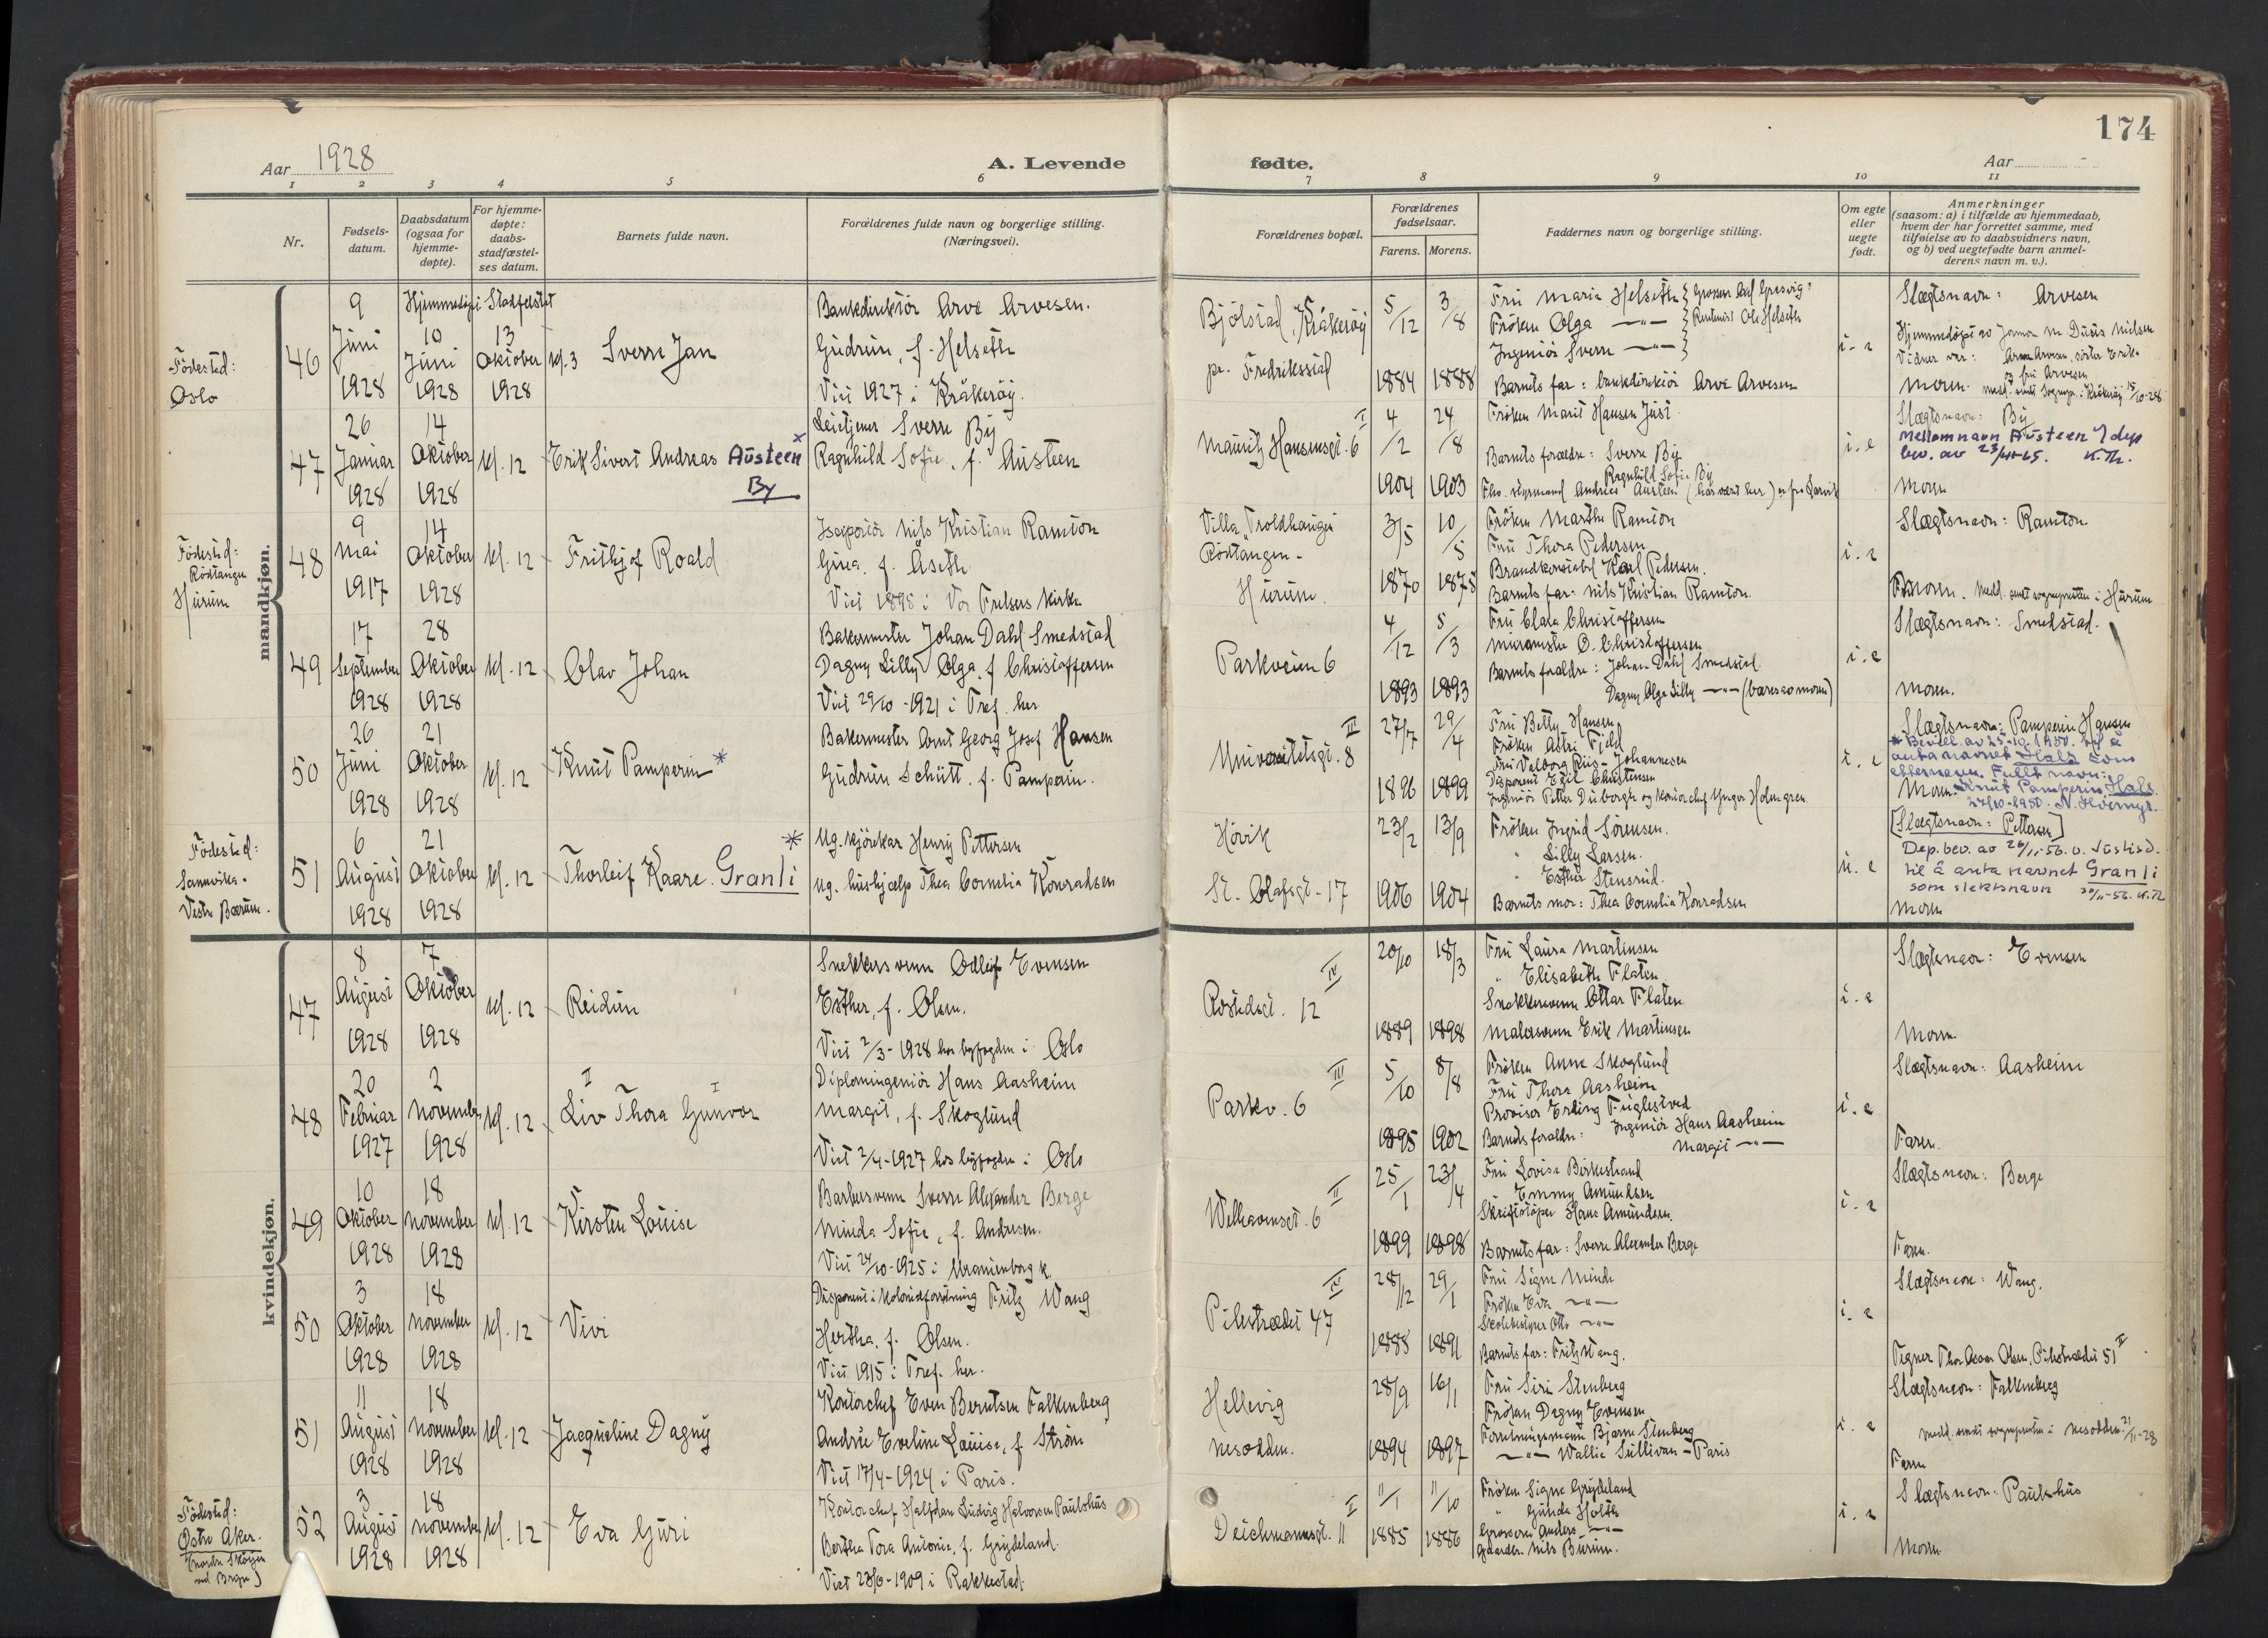 174
Aar 1928
A. Levende fødte.
Aar
1 2 3 4 5 6 7 8 9 10 11
Nr.
Fødsels-
datum.
Daabsdatum
(ogsaa for
hjemme-
døpte).
For hjemme-
døpte:
daabs-
stadfæstel-
ses datum.
Barnets fulde navn.
Forældrenes fulde navn og borgerlige stilling.
(Næringsvei).
Forældrenes bopæl.
Forældrenes
fødselsaar.
Farens. Morens.
Faddernes navn og borgerlige stilling.
Om egte
eller
uegte
født.
Anmerkninger
(saasom: a) i tilfælde av hjemmedaab,
hvem der har forrettet samme, med
tilføielse av to daabsvidners navn,
og b) ved uegtefødte barn anmel-
derens navn m. v.).
mandkjøn.
Födested:
Oslo
46
9
Juni
1928
Hjemmedöpt
10
Juni
1928
Stadfestet
13
Oktober
1928
kl. 3
Sverre Jan
Bankdirektör Arve Arvesen.
Gudrun, f. Helseth
Viet 1927 i Kråkeröy.
Bjölstad, Kråkeröy
pr. Fredriksstad
5/12 1884
3/8 1888
Fru Maria Helseth
Fröken Olga —"—
Ingeniör Sverre —"—
Rentenist Ole Helseth
Barnets far: bankdirektör Arve Arvesen
i. e
Slægtsnavn: Arvesen
Hjemmedöpt av Jomor M. Due Nielsen
og fru Arvesen
Moren. medd. sendt Sognepr. i Kråkeröy 15/10-28
47
26
Januar
1928
14
Oktober
1928
kl. 12
Erik Sivert Andreas Austeen
By
Sverre By
Ragnhild Sofie, f. Austeen
Mauritz Hansensgt. 6 I
4/2 1904
24/8 1903
Fröken Marit Hansen Just
Barnets forældre: Sverre By
Ragnhild Sofie By
Andreas Austeen (har vært her) er fra Larvik
i. e
Slægtsnavn: By
Mellomnavn Austeen
bev. av K.Th.
Moren
Födested:
Rödtangen
Hurum
48
9
Mai
1917
14
Oktober
1928
kl. 12
Frithjof Roald
Nils Kristian Ramton
Gina, f. Åseth
Viet 1898 i Vor Frelsers Kirke
Villa "Troldhaugen"
Rödtangen -
Hurum.
3/5 1870
10/5 1875
Fröken Martha Ramton
Fru Thora Pedersen
Brandkonstabel Karl Pedersen.
Barnets far: Nils Kristian Ramton.
i. e
Slægtsnavn: Ramton
Moren. Medd. sendt sognepresten i Hurum
49
17
September
1928
28
Oktober
1928
kl. 12
Olav Johan
Bakermester Johan Dahl Smedstad
Dagny Lilly Olga, f. Christoffersen
Viet 29/10-1921 i Tref. her
Parkveien 6
4/12 1893
5/3 1893
Fru Clara Christoffersen
Murmester O. Christoffersen
Barnets forældre: Johan Dahl Smedstad
Dagny Olga Lilly —"— (bæres av moren)
i. e
Slægtsnavn: Smedstad.
Moren.
50
26
Juni
1928
21
Oktober
1928
kl. 12
Knut Pamperin *
Bakermester Arnt Georg Josef Hansen
Gudrun Schütt, f. Pamperin.
Universitetsgt. 8 III
27/7 1896
29/4 1899
Fru Betty Hansen
Fröken Astri Fjeld
Fru Valborg Riis-Johannesen
Disponent Egil Christensen
Ingeniör Petter Duborgh og kontorchef Yngvar Holmgren
i. e
Slægtsnavn: Pamperin Hansen
* Bevill. av 25-10-1950 til å
anta navnet Hals som
etternavn. Fullt navn:
Moren. Knut Pamperin Hals.
Födested:
Sannvika.
Vestre Bærum.
51
6
August
1928
21
Oktober
1928
kl. 12
Thorleif Kaare. Granli *
Ug. kjörekar Henry Pettersen
Ug. hushjælp Thea Cornelia Konradsen
Hövik
St. Olafsgt. 17
23/2 1906
13/9 1904
Fröken Ingrid Sörensen.
" Lilly Larsen.
" Esther Stensrud.
Barnets mor: Thea Cornelia Konradsen
u. e
[Slægtsnavn: Pettersen]
Dep. bev. av 26/11-56. v. Justisd.
til å anta navnet Granli
som slektsnavn 30/11-56. K.Th
Moren
kvindekjøn.
47
8
August
1928
7
Oktober
1928
kl. 12
Reidun
Snekkersvenn Odleif Evensen
Esther, f. Olsen.
Viet 2/3-1928 hos byfogden i Oslo
Rostedsgt. 12 IV
20/10 1889
18/3 1898
Fru Laura Martinsen
" Elisabeth Flaten
Snekkersvenn Ottar Flaten
Malersvenn Erik Martinsen
i. e
Slægtsnavn: Evensen
Moren.
48
20
Februar
1927
2
November
1928
kl. 12
Liv Thora Gunvor
Diplomingeniör Hans Aasheim
Margit, f. Skoglund
Viet 2/4-1927 hos byfogden i Oslo
Parkv. 6 III
5/10 1895
8/8 1902
Fröken Anne Skoglund
Fru Thora Aasheim
Provisor Erling Fuglestved
Barnets forældre: Ingeniör Hans Aasheim
Margit —"—
i. e
Slægtsnavn: Aasheim
Faren.
49
10
Oktober
1928
18
November
1928
kl. 12
Kirsten Louise
Barbersvenn Sverre Alexander Berge
Minda Sofie, f. Andresen.
Viet 24/10-1925 i Uranienborg k.
Welhavensgt. 6 II
25/1 1899
23/4 1898
Fru Lovise Birkestrand
" Emmy Amundsen
Skriftstöper Hans Amundsen.
Barnets far: Sverre Alexander Berge
i. e
Slægtsnavn: Berge
Faren.
50
3
Oktober
1928
18
November
1928
kl. 12
Vivi
Disponent i kolonialforretning Fritz Wang
Hertha, f. Olsen.
Viet 1915 i Tref. her.
Pilestrædet 47 IV
28/12 1888
29/1 1891
Fru Signe Minde
Fröken Eva —"—
Skolebestyrer Otto —"—
Barnets far: Fritz Wang.
i. e
Slægtsnavn: Wang.
Tegner Thor Oscar Olsen, Pilestrædet 51 II
51
11
August
1928
18
November
1928
kl. 12
Jacqueline Dagny
Kontorchef Even Berntsen Falkenberg
Andrée Eveline Louise, f. Ström
Viet 17/4-1924 i Paris.
Hellvig
Nesodden.
28/9 1894
16/1 1897
Fru Siri Stenberg
Fröken Dagny Evensen
Forretningsmann Bjarne Stenberg
—"— Wallie Sullivan - Paris
i. e
Slægtsnavn: Falkenberg
Medd. sendt sognepresten i Nesodden 21/11-28
Faren
Födested:
Östre Aker.
52
3
August
1928
18
November
1928
kl. 12
Eva Guri
Kontorchef Halfdan Ludvig Halvorsen Paulshus
Bertha Tora Antonie, f. Gröydeland.
Viet 23/6-1909 i Rakkestad.
Deichmannsgt. 11 I
11/1 1885
11/10 1886
Fröken Signe Gröydeland
" Gunda Holth
Grosserer Anders —"—
Gaardbr. Nils Burum.
i. e
Slægtsnavn: Paulshus
Moren.